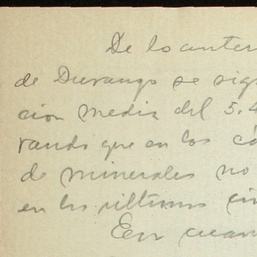 De lo anter
de Durango se sig
cion media del 5.4
rando que en los cá
de minerales no
en los ultimos cin
En cuan